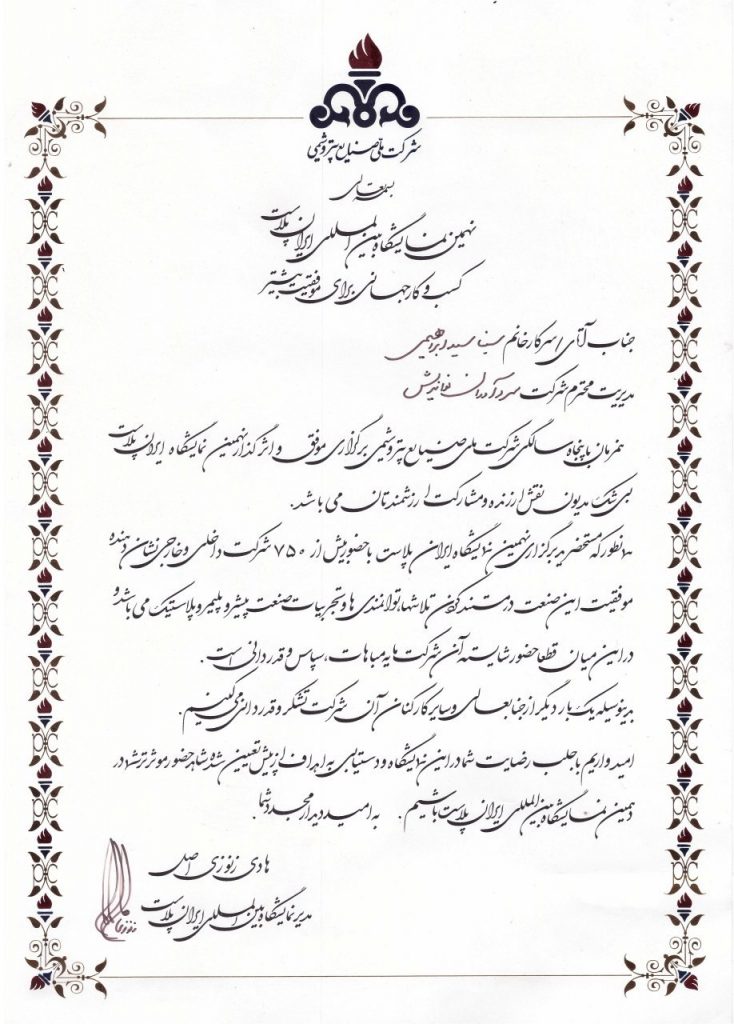 شرکت ملی صنایع پتروشیمی
بسمه تعالی
نهمین نمایشگاه بین المللی ایران پلاست
کسب و کار جهانی برای موفقیت بیشتر
جناب آقای / سرکار خانم سینا سید ابراهیمی
مدیریت محترم شرکت سرد آوران
همزمان با پنجاه سالگی شرکت ملی صنایع پتروشیمی برگزاری موفق و اثر گذار نهمین نمایشگاه ایران پلاست
بی شک مدیون نقش ارزنده و مشارکت ارزشمندتان می باشد.
همانطور که مستحضرید برگزاری نهمین نمایشگاه ایران پلاست با حضور بیش از ۷۵۰ شرکت داخلی و خارجی نشان دهنده
موفقیت این صنعت در مستند کردن تلاشها، توانمندی ها و تجربیات صنعت پیشرو پلیمر و پلاستیک می باشد و
در این میان قطعا حضور شایسته آن شرکت مایه مباهات، سپاس و قدردانی است.
بدینوسیله یک بار دیگر از جنابعالی و سایر کارکنان آن شرکت تشکر و قدردانی می کنیم.
امیدواریم با جلب رضایت شما در این نمایشگاه و دستیابی به اهداف از پیش تعیین شده شاهد حضور موثرتر شما در
دهمین نمایشگاه بین المللی ایران پلاست باشیم. به امید دیدار مجدد شما.
هادی زنوزی اصل
مدیر نمایشگاه بین المللی ایران پلاست